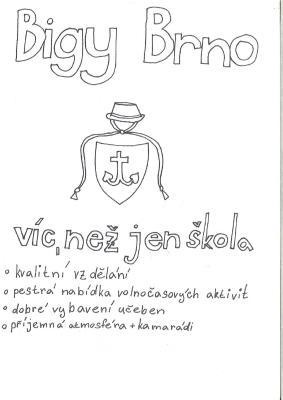 Bigy Brno
víc, než jen škola
kvalitní vzdělání
pestrá nabídka volnočasových aktivit
dobré vybavení učeben
příjemná atmosféra + kamarádi